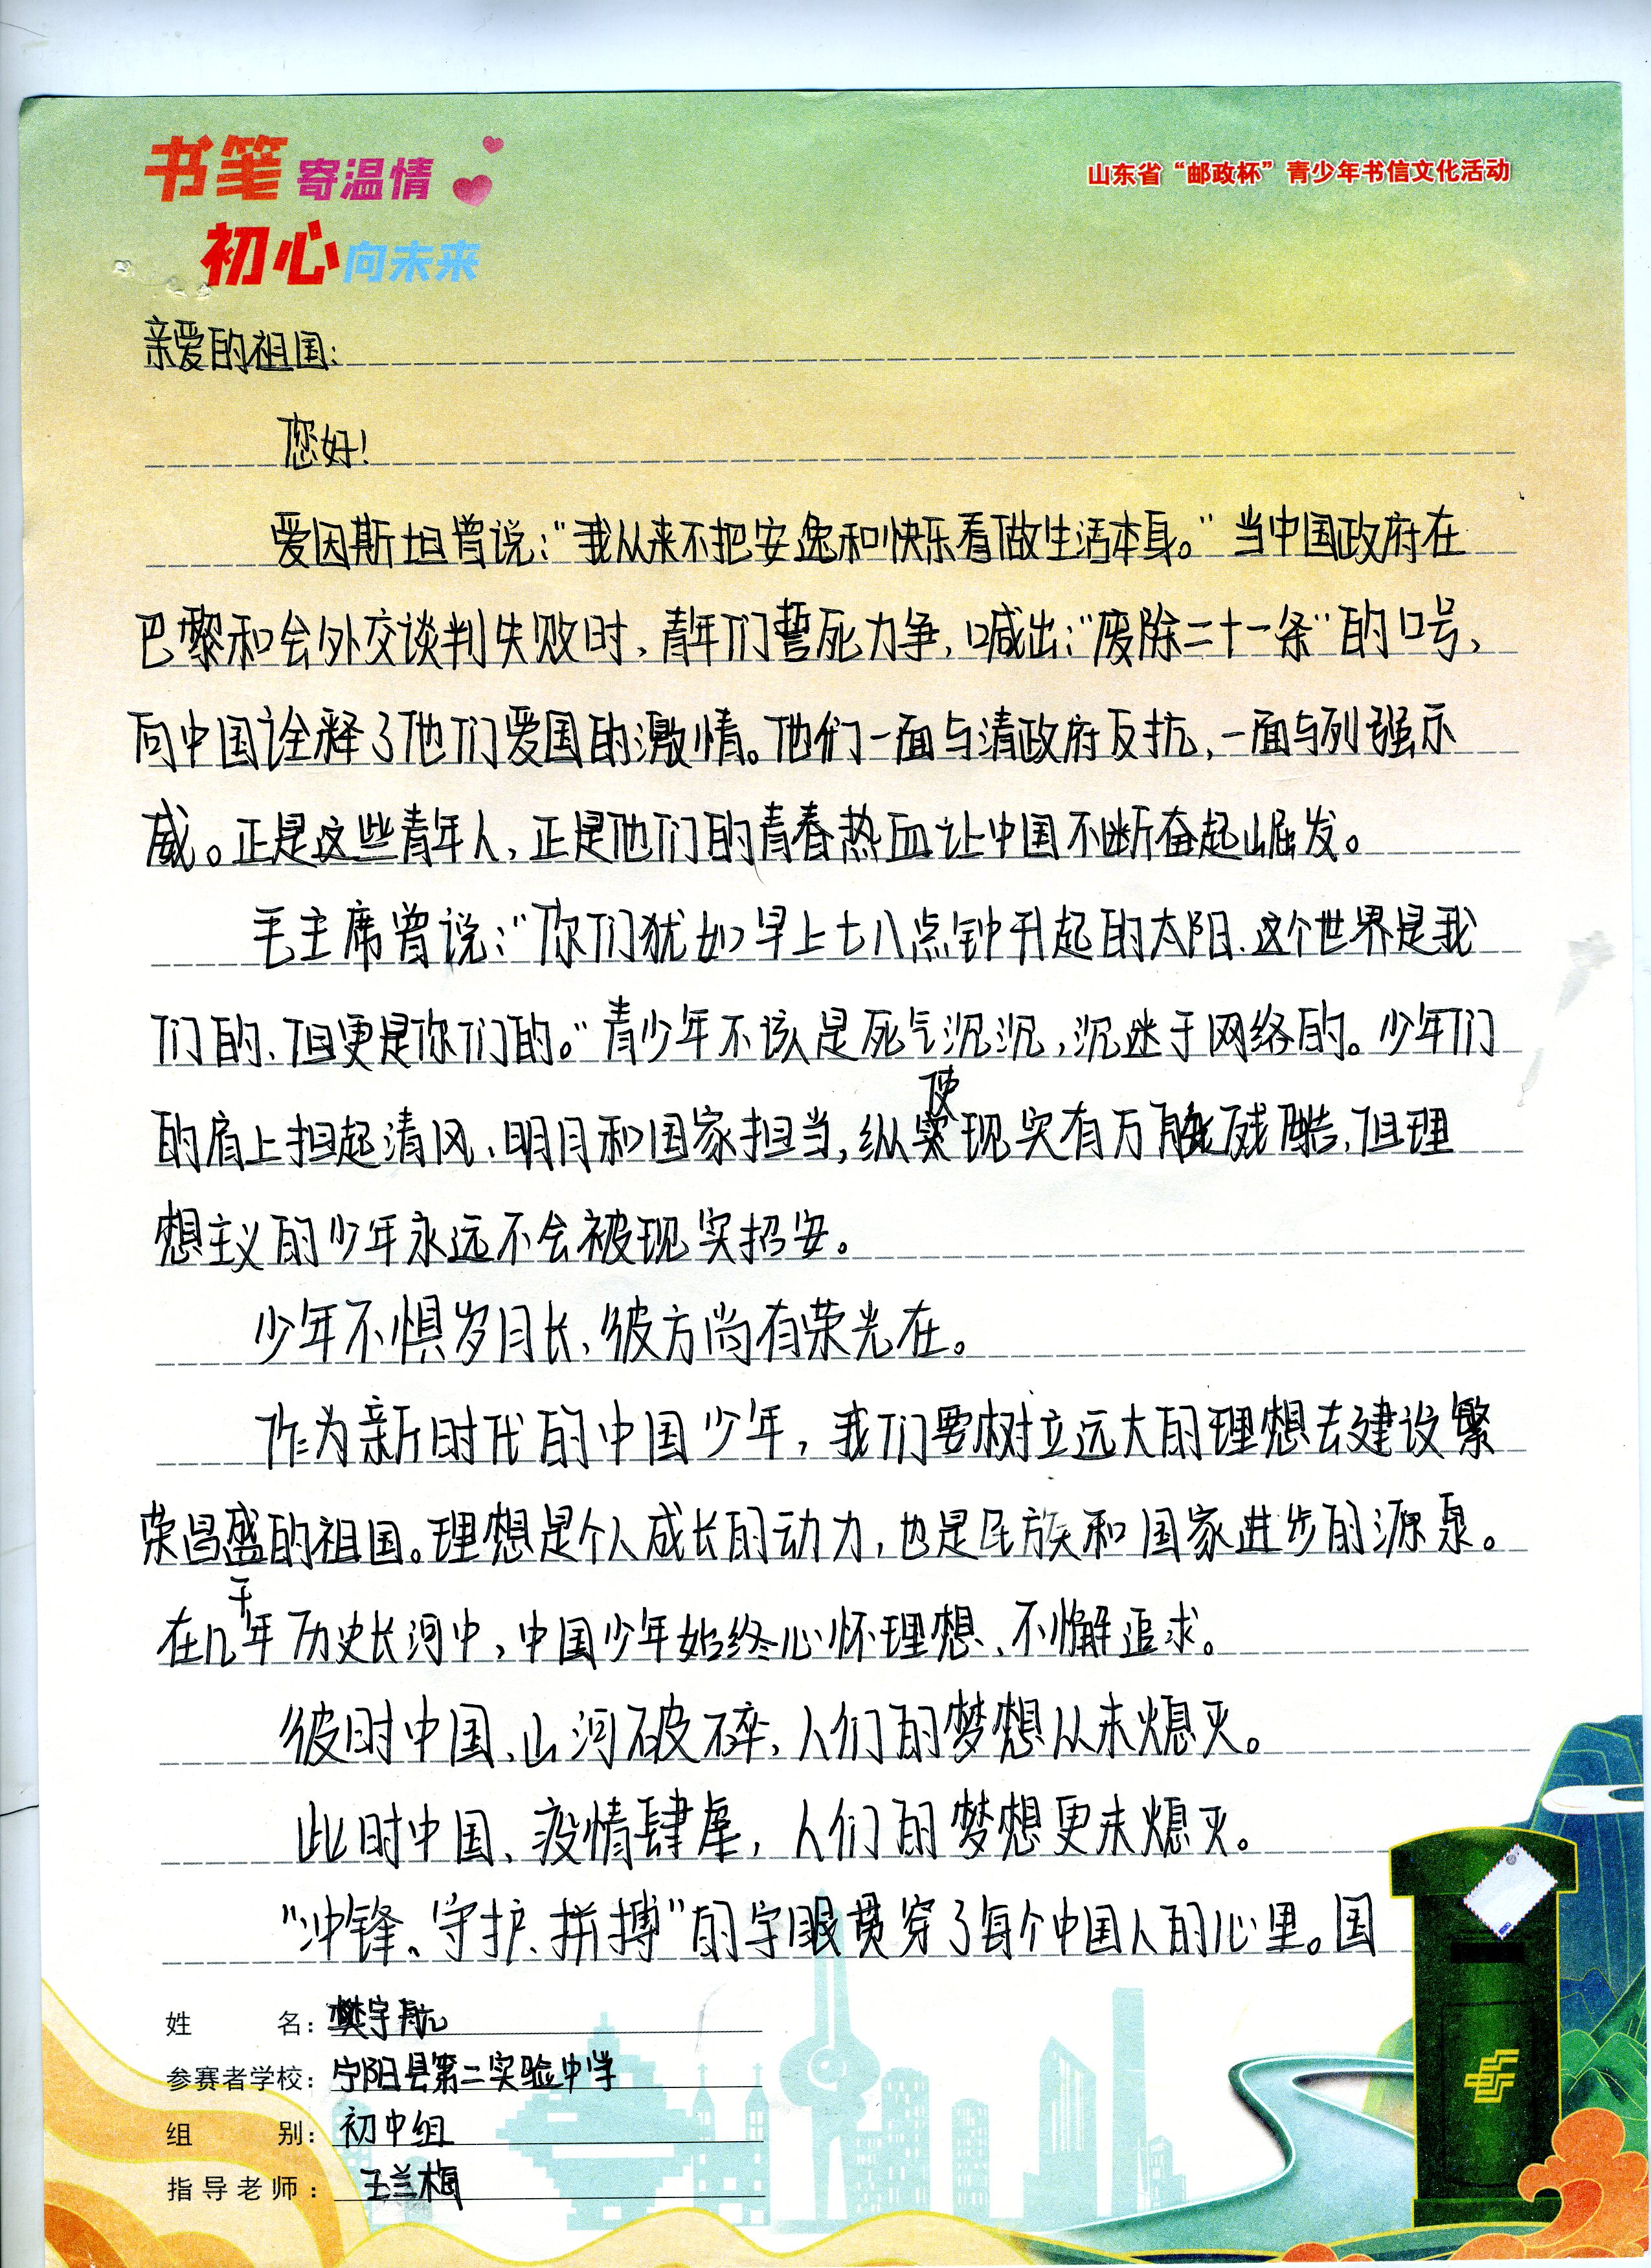 书笔寄温情
初心向未来
山东省“邮政杯”青少年书信文化活动
亲爱的祖国:
您好!
爱因斯坦曾说:“我从来不把安逸和快乐看做生活本身。”当中国政府在
巴黎和会外交谈判失败时,青年们誓死力争,喊出:“废除二十一条”的口号,
向中国诠释了他们爱国的激情。他们一面与清政府反抗,一面与列强示
威。正是这些青年人,正是他们的青春热血让中国不断奋起崛发。
毛主席曾说:“你们犹如早上七八点钟升起的太阳、这个世界是我
们的、但更是你们的。”青少年不该是死气沉沉,沉迷于网络的。少年们
的肩上担起清风、明月和国家担当,纵使现实有万般威酷,但理
想主义的少年永远不会被现实招安。
少年不惧岁月长、彼方尚有荣光在。
作为新时代的中国少年,我们要树立远大的理想去建设繁
荣昌盛的祖国。理想是个人成长的动力,也是民族和国家进步的源泉。
在几千年历史长河中,中国少年始终心怀理想、不懈追求。
彼时中国、山河破碎,人们的梦想从未熄灭。
此时中国、疫情肆虐,人们的梦想更未熄灭。
“冲锋、守护、拼搏”的字眼贯穿了每个中国人的心里。国
姓名:樊宇航
参赛者学校:宁阳县第二实验中学
组别:初中组
指导老师:王兰梅